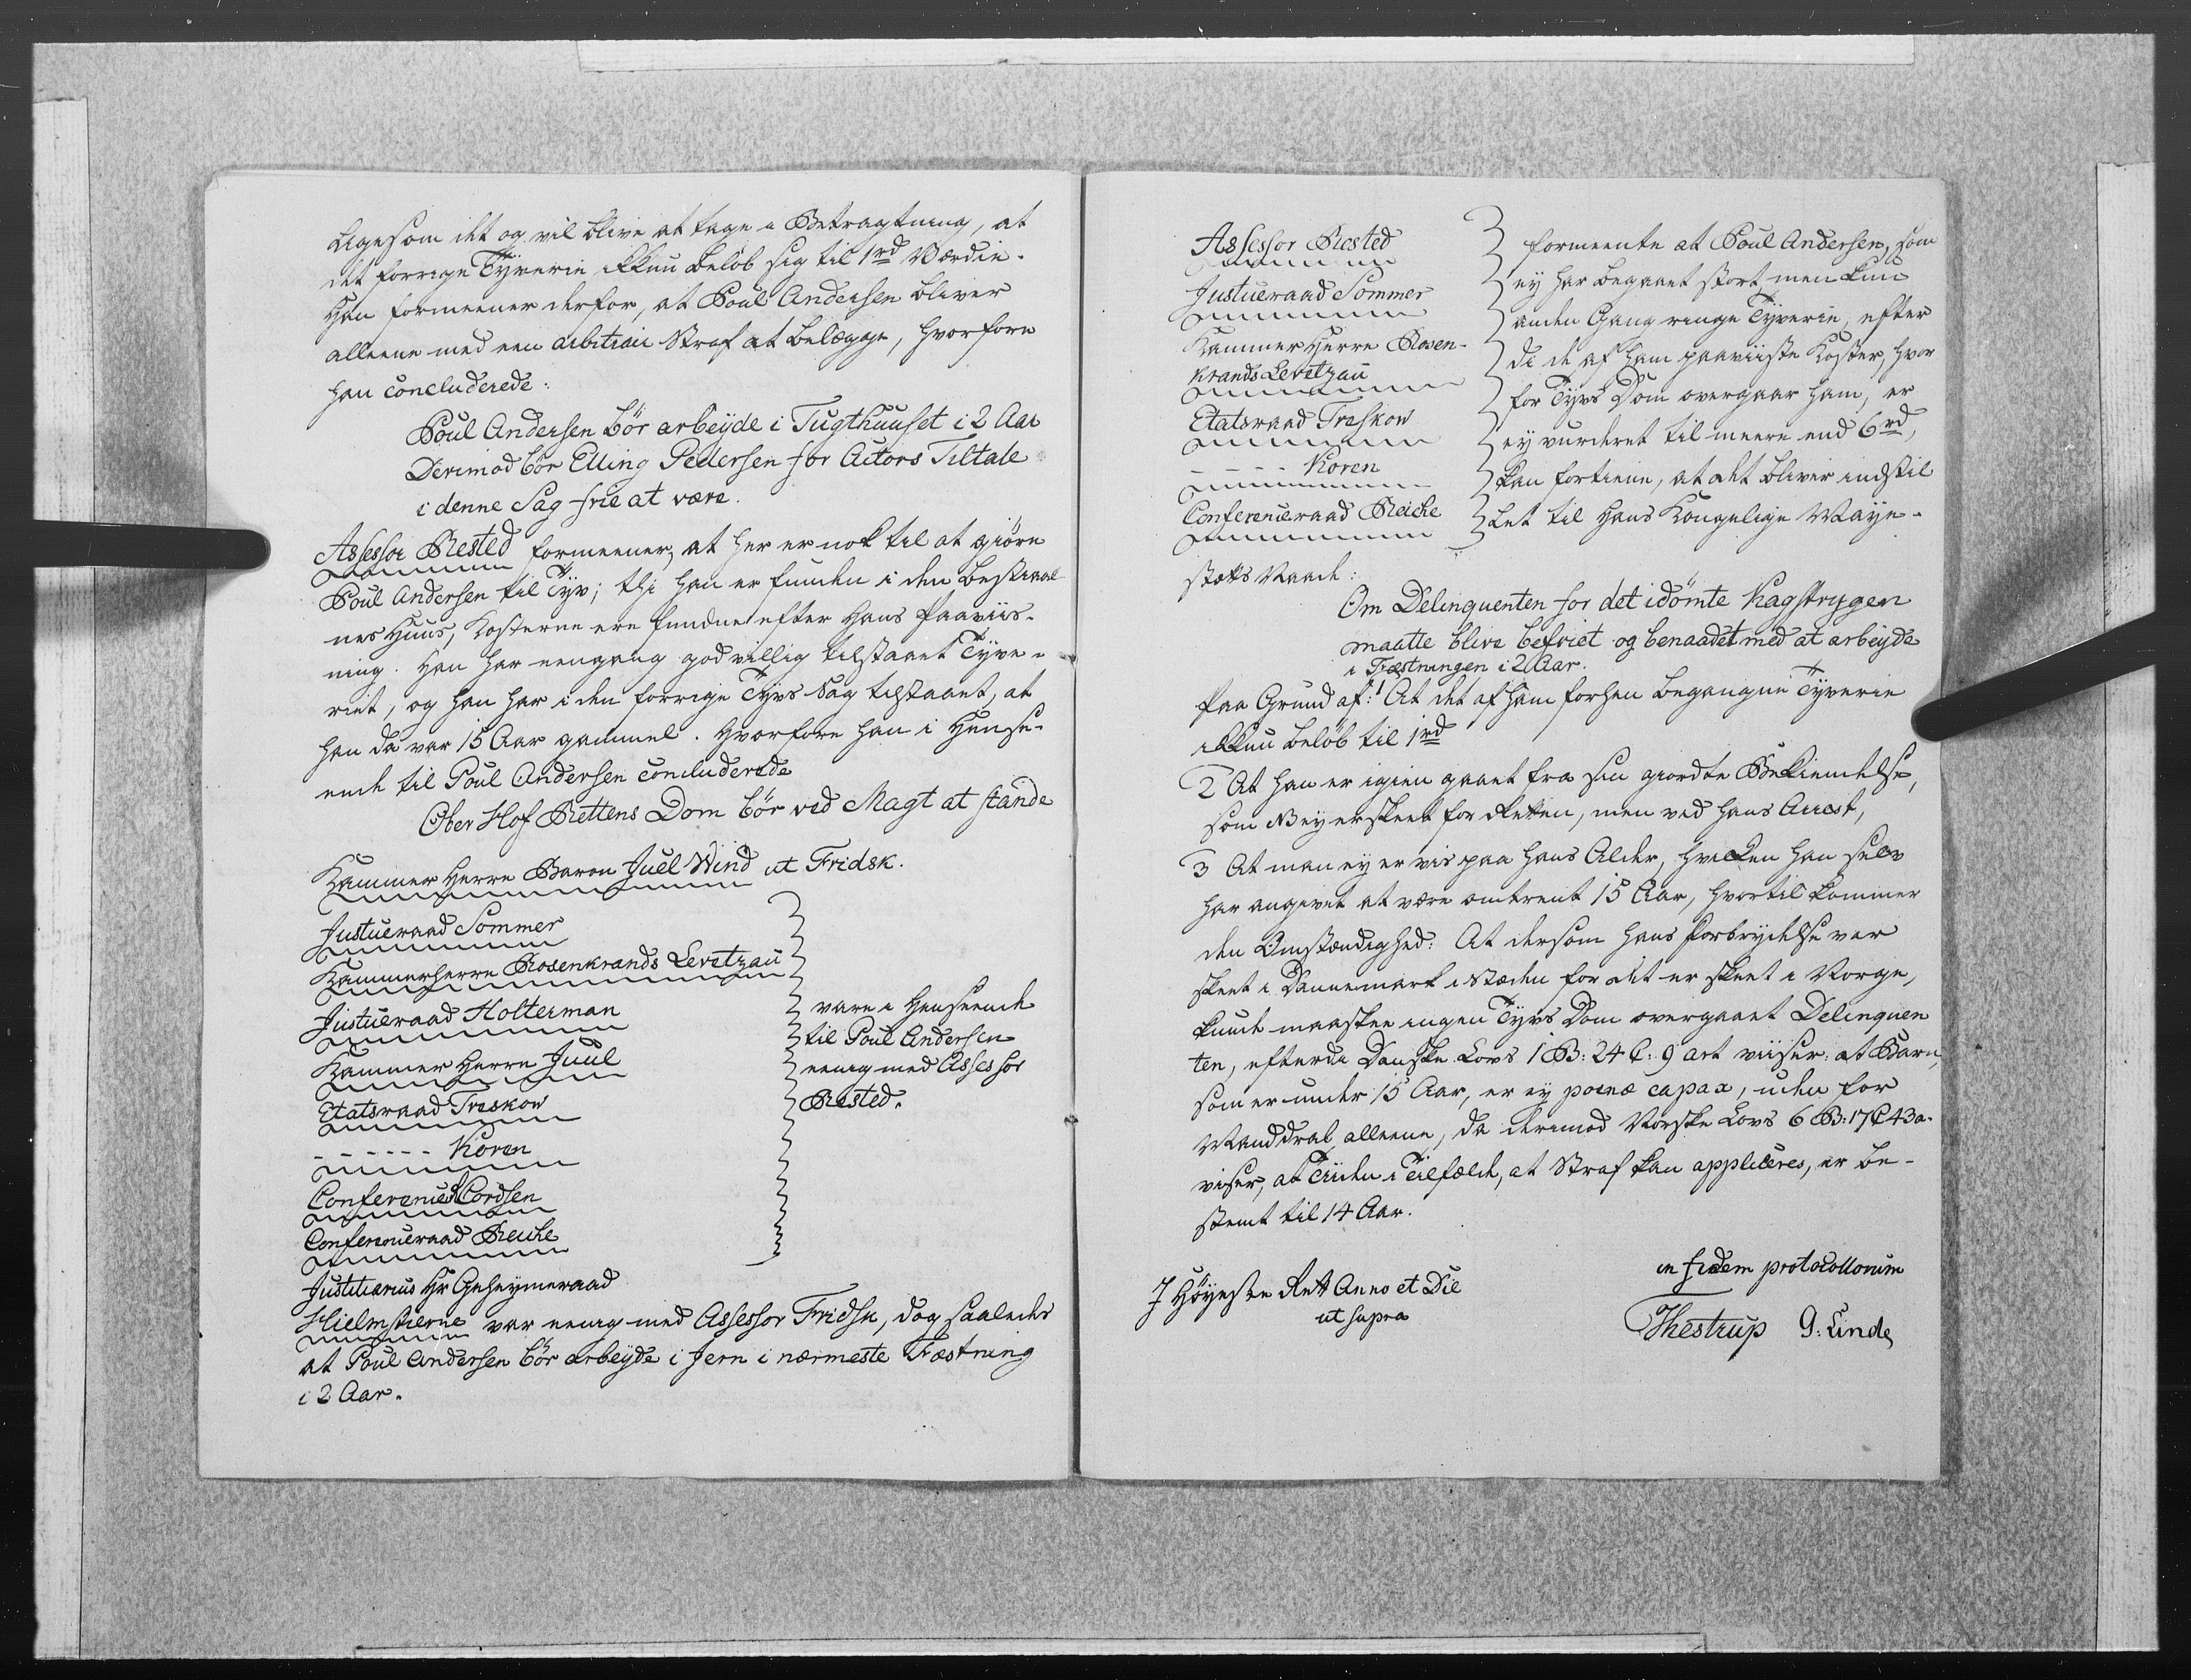 Ligesom det og vil blive at tage i Betragtning, at
det forrige Tÿverie ikkun beløb sig til 1rd Værdie.
Han formeener derfor, at Poul Andersen bliver
alleene med een arbitrair Straf at belægge, hvorfore
han concluderede:
Poul Andersen bör arbeyde i Tugthuuset i 2 Aar
Derimod bör Elling Pedersen for Actors Tiltale
i denne Sag frie at være.
Assessor Rested formeener, at her er nok til at giöre
Poul Andersen til Tÿv; thi han er funden i den bestiaal-
nes Huus, Kosterne ere fundne efter hans Paaviis-
ning. Han har eengang godvillig tilstaaet Tÿve-
riet, og han har i den forrige Tÿvs Sag tilstaaet, at
han da var 15 Aar gammel. Hvorfore han i Hense-
ende til Poul Andersen concluderede
Ober Hof Rettens Dom bör ved Magt at stande
Kammer Herre Baron Juel Wind ut Fridsk.
Justiceraad Sommer
Kammerherre Rosenkrands Levetzau
Justiceraad Holterman
Kammer Herre Juul
Etatsraad Treskow
- - - - - - Koren
Conferencer Cordsen
Conferenceraad Reiche
vare i Henseende
til Poul Andersen
eenig med Assessor
Rested.
Justitiarius Hr Geheymeraad
Hielmstierne var eenig med Assessor Fridsk, dog saaledes
at Poul Andersen bör arbeÿde i Jern i nærmeste Fæstning
i 2 Aar.
Assessor Rested
Justiceraad Sommer
Kammer Herre Rosen-
krands Levetzau
Etatsraad Treskow
- - - - - Koren
Conferenceraad Reiche
formeente at Poul Andersen, som
ey har begaaet stort, men kun
anden Gang ringe Tÿverie, efter
di de af ham paaviiste Koster, hvor
for Tÿvs Dom overgaar ham, er
ey vurderet til meere end 6rd,
kan fortiene, at det bliver indstil
let til Hans Kongelige Maye-
stæts Naade:
Om Delinquenten for det idömte Kagstrygen
maatte blive befriet og benaadet med at arbeyde
i Fæstningen i 2 Aar.
Paa Grund af: 1 At det af ham forhen begangne Tÿverie
ikkun beløb til 1rd
2 At han er igien gaaet fra sin giordte Bekiendelse,
som ey er skeet for Retten, men ved hans Arrest,
3 At man ey er vis paa hans Alder, hvilken han selv
har angivet at være omtrent 15 Aar, hvortil kommer
den Omstændighed: At dersom hans Forbrydelse var
skeet i Dannemark i Stæden for det er skeet i Norge,
kunde maaskee ingen Tÿvs Dom overgaaet Delinquen
ten, efterdi Danske Lovs 1 B: 24 C: 9 art viiser: at Barn,
som er under 15 Aar, er ey poenæ capax, uden for
Manddrab alleene, da derimod Norske Lovs 6 B: 17 C 43 a.
viser, at Tiiden i Tilfælde, at Straf kan appliceres, er be-
stemt til 14 Aar.
J Höyeste Rett Anno et Die
ut supra
in fidem protocollorum
Thestrup G: Linde